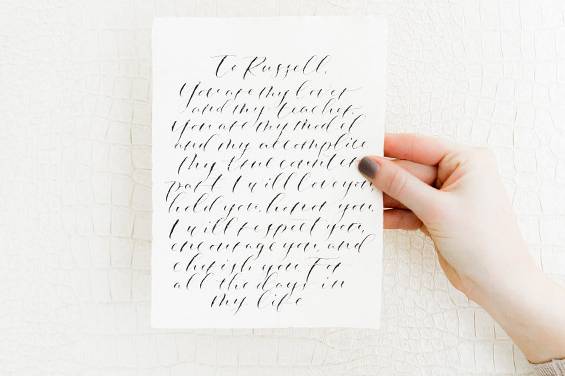 To Russell,
You are my lover
and my teacher.
You are my model
and my accomplice
My true counter
part. I will love you,
hold you, honor you,
I will respect you,
encourage you, and
cherish you For
all the days in
my life